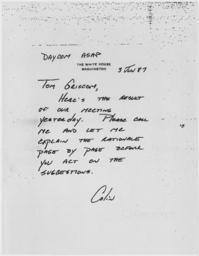 DAYCOM ASAP
THE WHITE HOUSE
WASHINGTON
3 JUN 87
TOM GRISCOM,
HERE'S THE RESULT
OF OUR MEETING
YESTERDAY. PLEASE CALL
ME AND LET ME
EXPLAIN THE RATIONALE
PAGE BY PAGE BEFORE
YOU ACT ON THE
SUGGESTIONS.
Colin